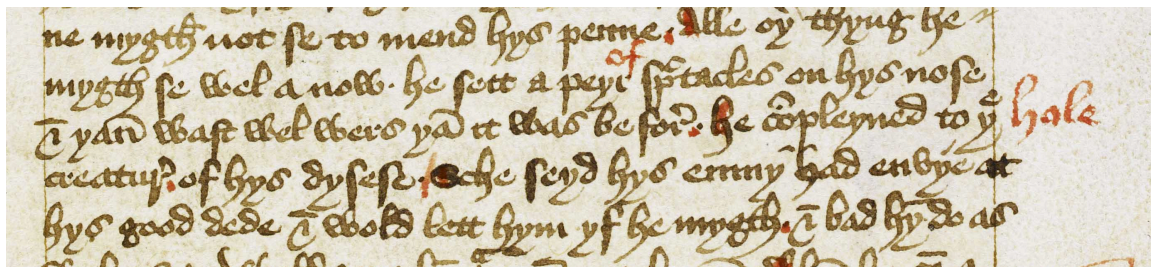 ne mygth not se to mend hys penne. Alle oþ̉ thyng he
mygth se wel a now. he sett a peyr of spectacles on hys nose
& yan̄ wast wel wers yā it was be for. he cōpleyned to yͤ hole
creatur. of hys dysese. Sche seyd hys enmy had envye at
hys good dede & wold lett hym yf he mygth. & bad hȳ do as